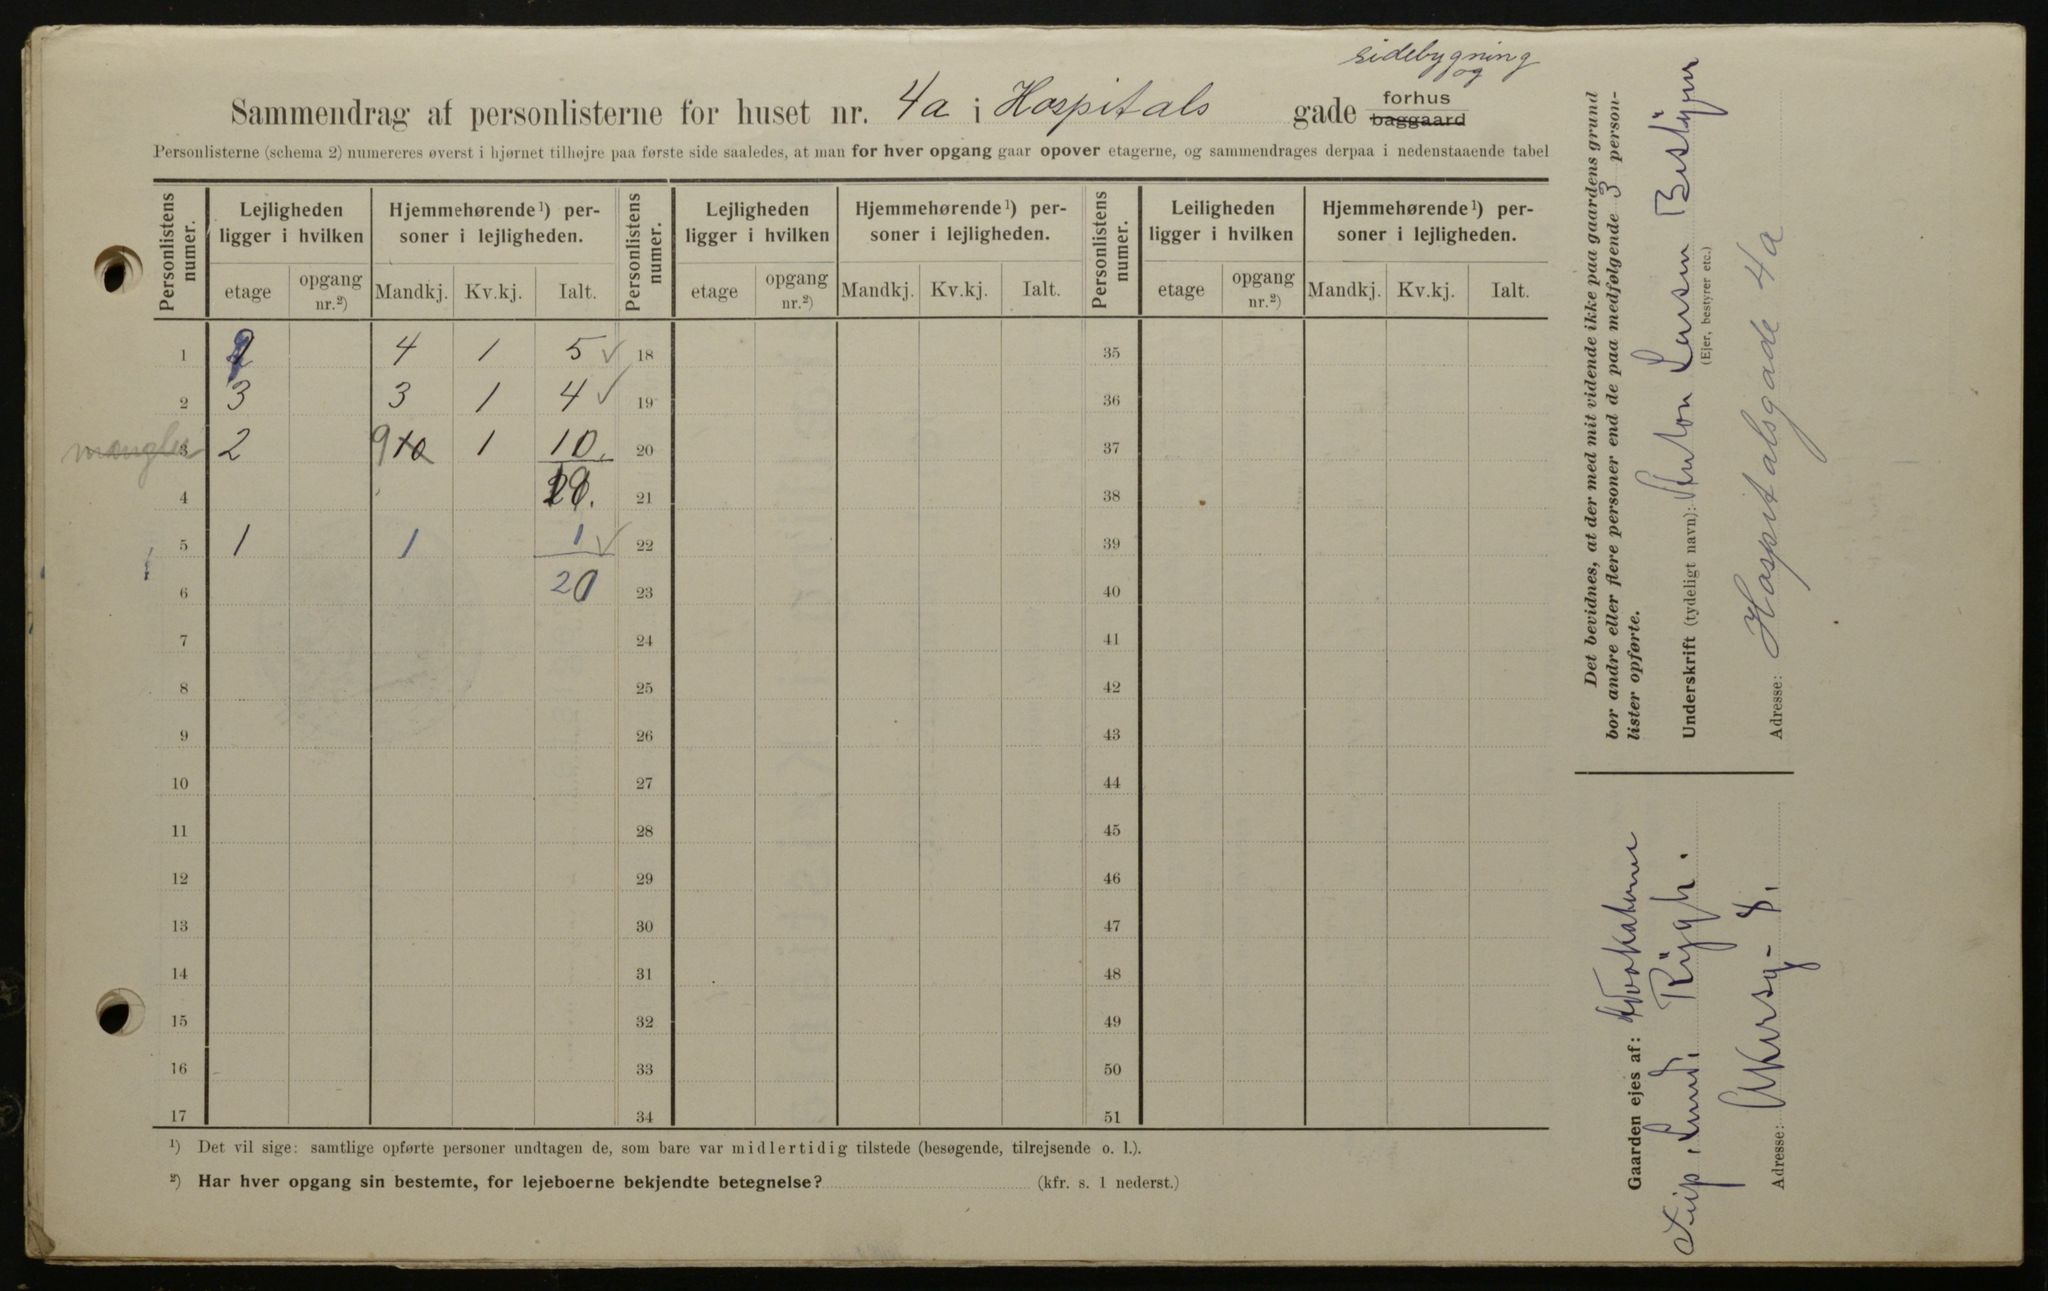 sidebygning
og
Sammendrag af personlisterne for huset nr. 4a i Hospitals gade forhus baggaard
Personlisterne (schema 2) numereres øverst i hjørnet tilhøjre paa første side saaledes, at man for hver opgang gaar opover etagerne, og sammendrages derpaa i nedenstaaende tabel
Personlistens numer. Lejligheden ligger i hvilken Hjemmehørende¹) personer i lejligheden. Personlistens numer. Lejligheden ligger i hvilken Hjemmehørende¹) personer i lejligheden. Personlistens numer. Leiligheden ligger i hvilken Hjemmehørende¹) personer i lejligheden.
etage opgang nr.²) Mandkj. Kv.kj. Ialt. etage opgang nr.²) Mandkj. Kv.kj. Ialt. etage opgang nr.²) Mandkj. Kv.kj. Ialt.
1 4 1 5 ✓ 18 35
2 3 3 1 4 ✓ 19 36
mangler 3 2 9 10 1 10. 20 37
4 21 38
5 1 1 1 ✓ 22 39
6 20 23 40
7 24 41
8 25 42
9 26 43
10 27 44
11 28 45
12 29 46
13 30 47
14 31 48
15 32 49
16 33 50
17 34 51
¹) Det vil sige: samtlige opførte personer undtagen de, som bare var midlertidig tilstede (besøgende, tilrejsende o. l.).
²) Har hver opgang sin bestemte, for lejeboerne bekjendte betegnelse? (kfr. s. 1 nederst.)
Det bevidnes, at der med mit vidende ikke paa gaardens grund
bor andre eller flere personer end de paa medfølgende 3 person-
lister opførte.
Underskrift (tydeligt navn): Anton Larsen Bestyrer
(Ejer, bestyrer etc.)
Adresse: Hospitalsgade 4a
Gaarden ejes af: Advokaterne
Seip, Lund. Rygh.
Adresse: Akersg- 8.